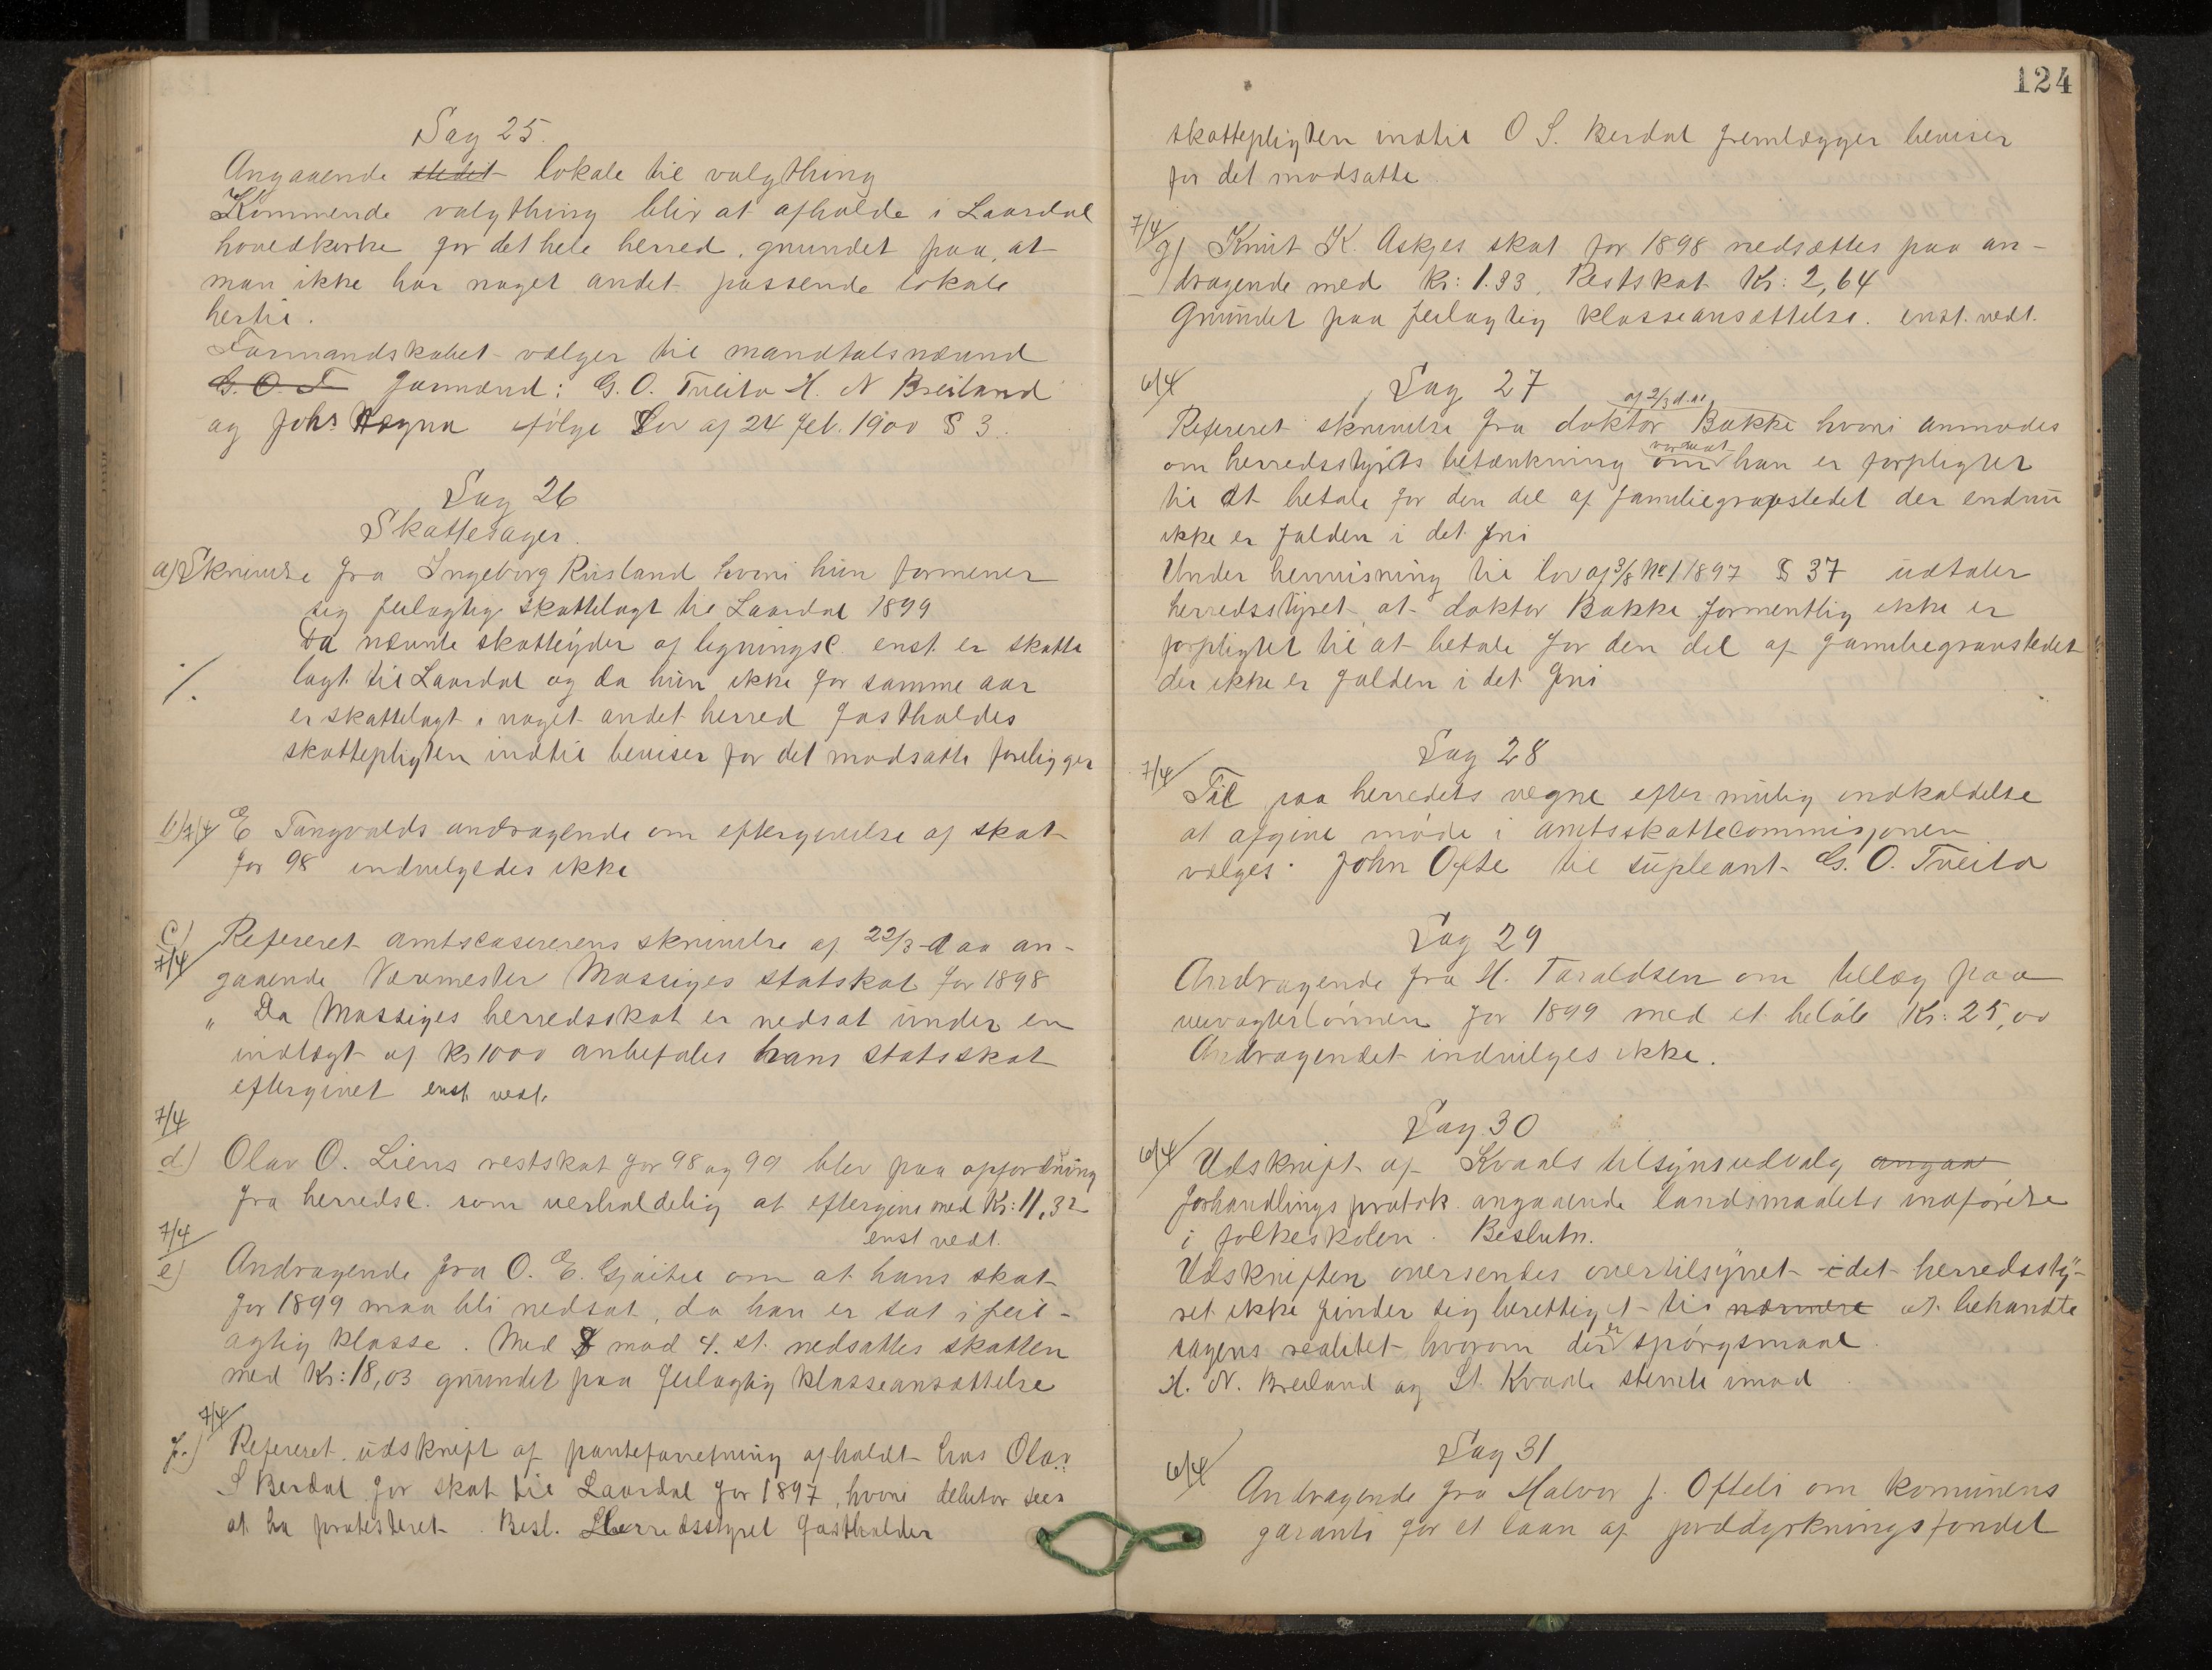 Sag 25.
Angaaende stedet lokale til valgthing
Kommende valgthing blir at afholde i Laardal
hovedkirke for det hele herred, grundet paa, at
man ikke har noget andet passende lokale
hertil.
Formandskabet vælger til mandtalsnævnd
G. O. T formænd: G. O. Tveito H. N Breiland
og Johs Høgna ifølge Lov af 24 feb. 1900 § 3.
Sag 26
Skattesager.
a) Skrivelse fra Ingeborg Riisland hvori hun formener
sig feilagtig skattelagt til Laardal 1899
Da nævnte skatteyder af ligningsc. enst. er skatte
lagt til Laardal og da hun ikke for samme aar
er skattelagt i noget andet herred fastholdes
skattepligten indtil beviser for det modsatte foreligger
b) 7/4 E Tangvalds andragende om eftergivelse af skat
for 98 indvilgedes ikke
c) 7/4 Refereret amtscasererens skrivelse af 22/3 d aa an-
gaaende Værmester Massiges statskat for 1898
" Da Massiges herredsskat er nedsat under en
indtægt af kr 1000 anbefales hans statsskat
eftergivet enst. vedt.
7/4
d) Olav O. Liens restskat for 98 og 99 blev paa opfordning
fra herredsc. som uerholdelig at eftergives med Kr: 11,32
enst vedt.
7/4
e) Andragende fra O. E. Gjøitil om at hans skat
for 1899 maa bli nedsat, da han er sat i feil-
agtig klasse. Med 8 mod 4. st. nedsattes skatten
med Kr: 18,03 grundet paa feilagtig klasseansættelse
7/4
f.) Refereret udskrift af panteforretning afholdt hos Olav
S Berdal for skat til Laardal for 1897, hvori debitor sees
at ha protesteret. Besl. Herredsstyret fastholder
124
skattepligten indtil O S. Berdal fremlægger beviser
for det modsatte
7/4
g) Knut K. Askjes skat for 1898 nedsættes paa an-
dragende med Kr: 1.93, Restskat Kr: 2,64
Grundet paa feilagtig klasseansættelse. enst. vedt.
6/4 Sag 27
af 2/3 d. aa.
Refereret skrivelse fra doktor Bakke hvori anmodes
om herredsstyrets betænkning om hvorvidt han er forpligtet
til at betale for den del af familiegravstedet der endnu
ikke er falden i det fri
Under henvisning til lov af 3/8 No 1 1897 § 37 udtaler
herredsstyret at doktor Bakke formentlig ikke er
forpligtet til at betale for den del af familiegravstedet
der ikke er falden i det fri
Sag 28
7/4 Til paa herredets vegne efter mulig indkaldelse
at afgive møde i amtsskattecommisjonen
vælges. John Ofte til supleant G. O. Tveito
Sag 29
Andragende fra H. Taraldsen om tillæg paa
veivogterlønnen for 1899 med et beløb Kr: 25,00
Andragendet indvilges ikke.
Sag 30
6/4 Udskrift af Kvaals tilsynsudvalg angaa
forhandlingsprotok. angaaende landsmaalets indførelse
i folkeskolen. Beslutn.
Udskriften oversendes overtilsynet idet herredssty-
ret ikke finder sig berettiget til nærmere at behandle
sagens realitet hvorom der er spørgsmaal.
H. N. Breiland og St. Kvaale stemte imod.
Sag 31
6/4 Andragende fra Halvor J. Ofteli om komunens
garanti for et laan af jorddyrkningsfondet